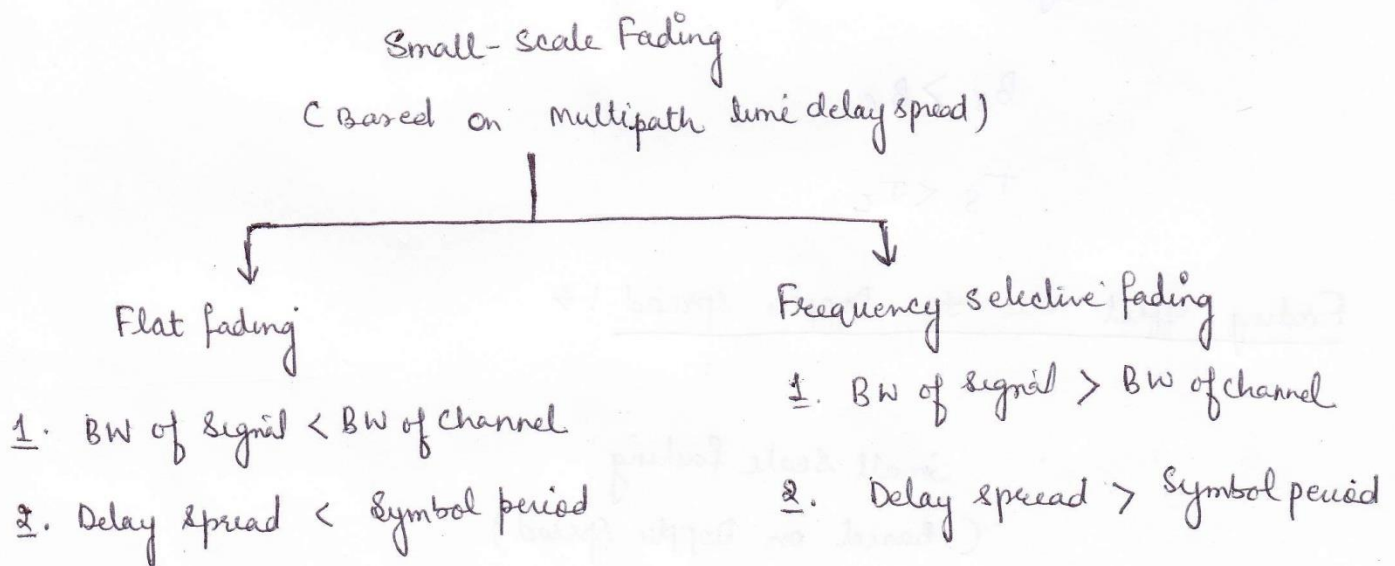 Small-Scale Fading
(Based on multipath time delay spread)
Flat fading
1. BW of Signal < BW of Channel
2. Delay spread < Symbol period
Frequency selective fading
1. BW of signal > BW of channel
2. Delay spread > Symbol period